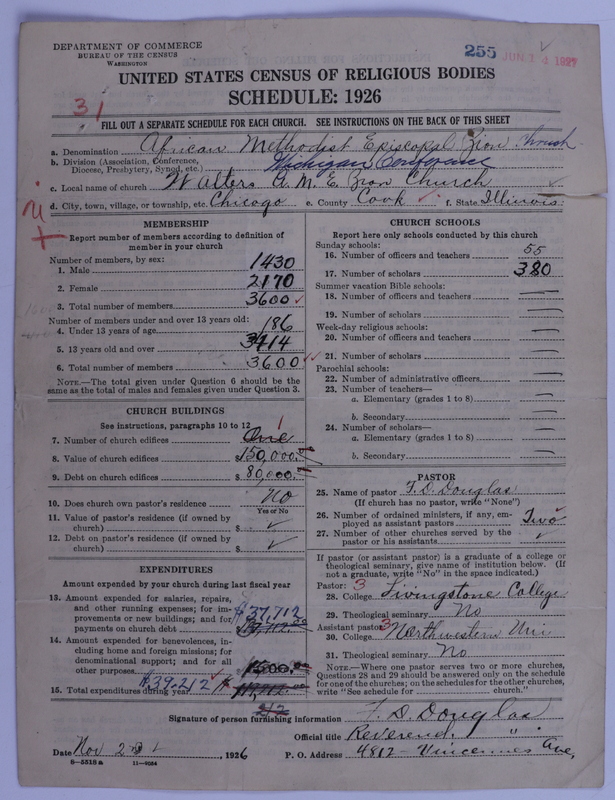 DEPARTMENT OF COMMERCE
BUREAU OF THE CENSUS
WASHINGTON
255 JUN 14 1927
UNITED STATES CENSUS OF RELIGIOUS BODIES
SCHEDULE: 1926
31
FILL OUT A SEPARATE SCHEDULE FOR EACH CHURCH. SEE INSTRUCTIONS ON THE BACK OF THIS SHEET
a. Denomination African Methodist Episcopal Zion Church
b. Division (Association, Conference, Diocese, Presbytery, Synod, etc.) Michigan Conference
c. Local name of church Walters A. M. E. Zion Church
d. City, town, village, or township, etc. Chicago e. County Cook f. State Illinois
MEMBERSHIP
Report number of members according to definition of
member in your church
Number of members, by sex:
1. Male 1430
2. Female 2170
3. Total number of members 3600
Number of members under and over 13 years old:
4. Under 13 years of age 186
5. 13 years old and over 3414
6. Total number of members 3600
NOTE.—The total given under Question 6 should be the
same as the total of males and females given under Question 3.
CHURCH BUILDINGS
See instructions, paragraphs 10 to 12
7. Number of church edifices One 1
8. Value of church edifices $150,000.00
9. Debt on church edifices $80,000.00
10. Does church own pastor's residence No
Yes or No
11. Value of pastor's residence (if owned by
church) $
12. Debt on pastor's residence (if owned by
church) $
EXPENDITURES
Amount expended by your church during last fiscal year
13. Amount expended for salaries, repairs,
and other running expenses; for im-
provements or new buildings; and for
payments on church debt $37,712
14. Amount expended for benevolences, in-
cluding home and foreign missions; for
denominational support; and for all
other purposes 1500.00
15. Total expenditures during year $39,212
CHURCH SCHOOLS
Report here only schools conducted by this church
Sunday schools:
16. Number of officers and teachers 55
17. Number of scholars 380
Summer vacation Bible schools:
18. Number of officers and teachers —
19. Number of scholars —
Week-day religious schools:
20. Number of officers and teachers —
21. Number of scholars —
Parochial schools:
22. Number of administrative officers —
23. Number of teachers—
a. Elementary (grades 1 to 8) —
b. Secondary —
24. Number of scholars—
a. Elementary (grades 1 to 8) —
b. Secondary —
PASTOR
25. Name of pastor F. D. Douglas
(If church has no pastor, write "None")
26. Number of ordained ministers, if any, em-
ployed as assistant pastors Two
27. Number of other churches served by the
pastor or his assistants
If pastor (or assistant pastor) is a graduate of a college or
theological seminary, give name of institution below. (If
not a graduate, write "No" in the space indicated.)
Pastor: 3
28. College Livingstone College
29. Theological seminary No
Assistant pastor: 3
30. College Northwestern Uni
31. Theological seminary No
NOTE.—Where one pastor serves two or more churches,
Questions 28 and 29 should be answered only on the schedule
for one of the churches; on the schedules for the other churches,
write "See schedule for ________ church."
Signature of person furnishing information F. D. Douglas
Official title Reverend
Date Nov 2nd, 1926 P. O. Address 4812 - Vincennes Ave,
8—5518a 11—9054